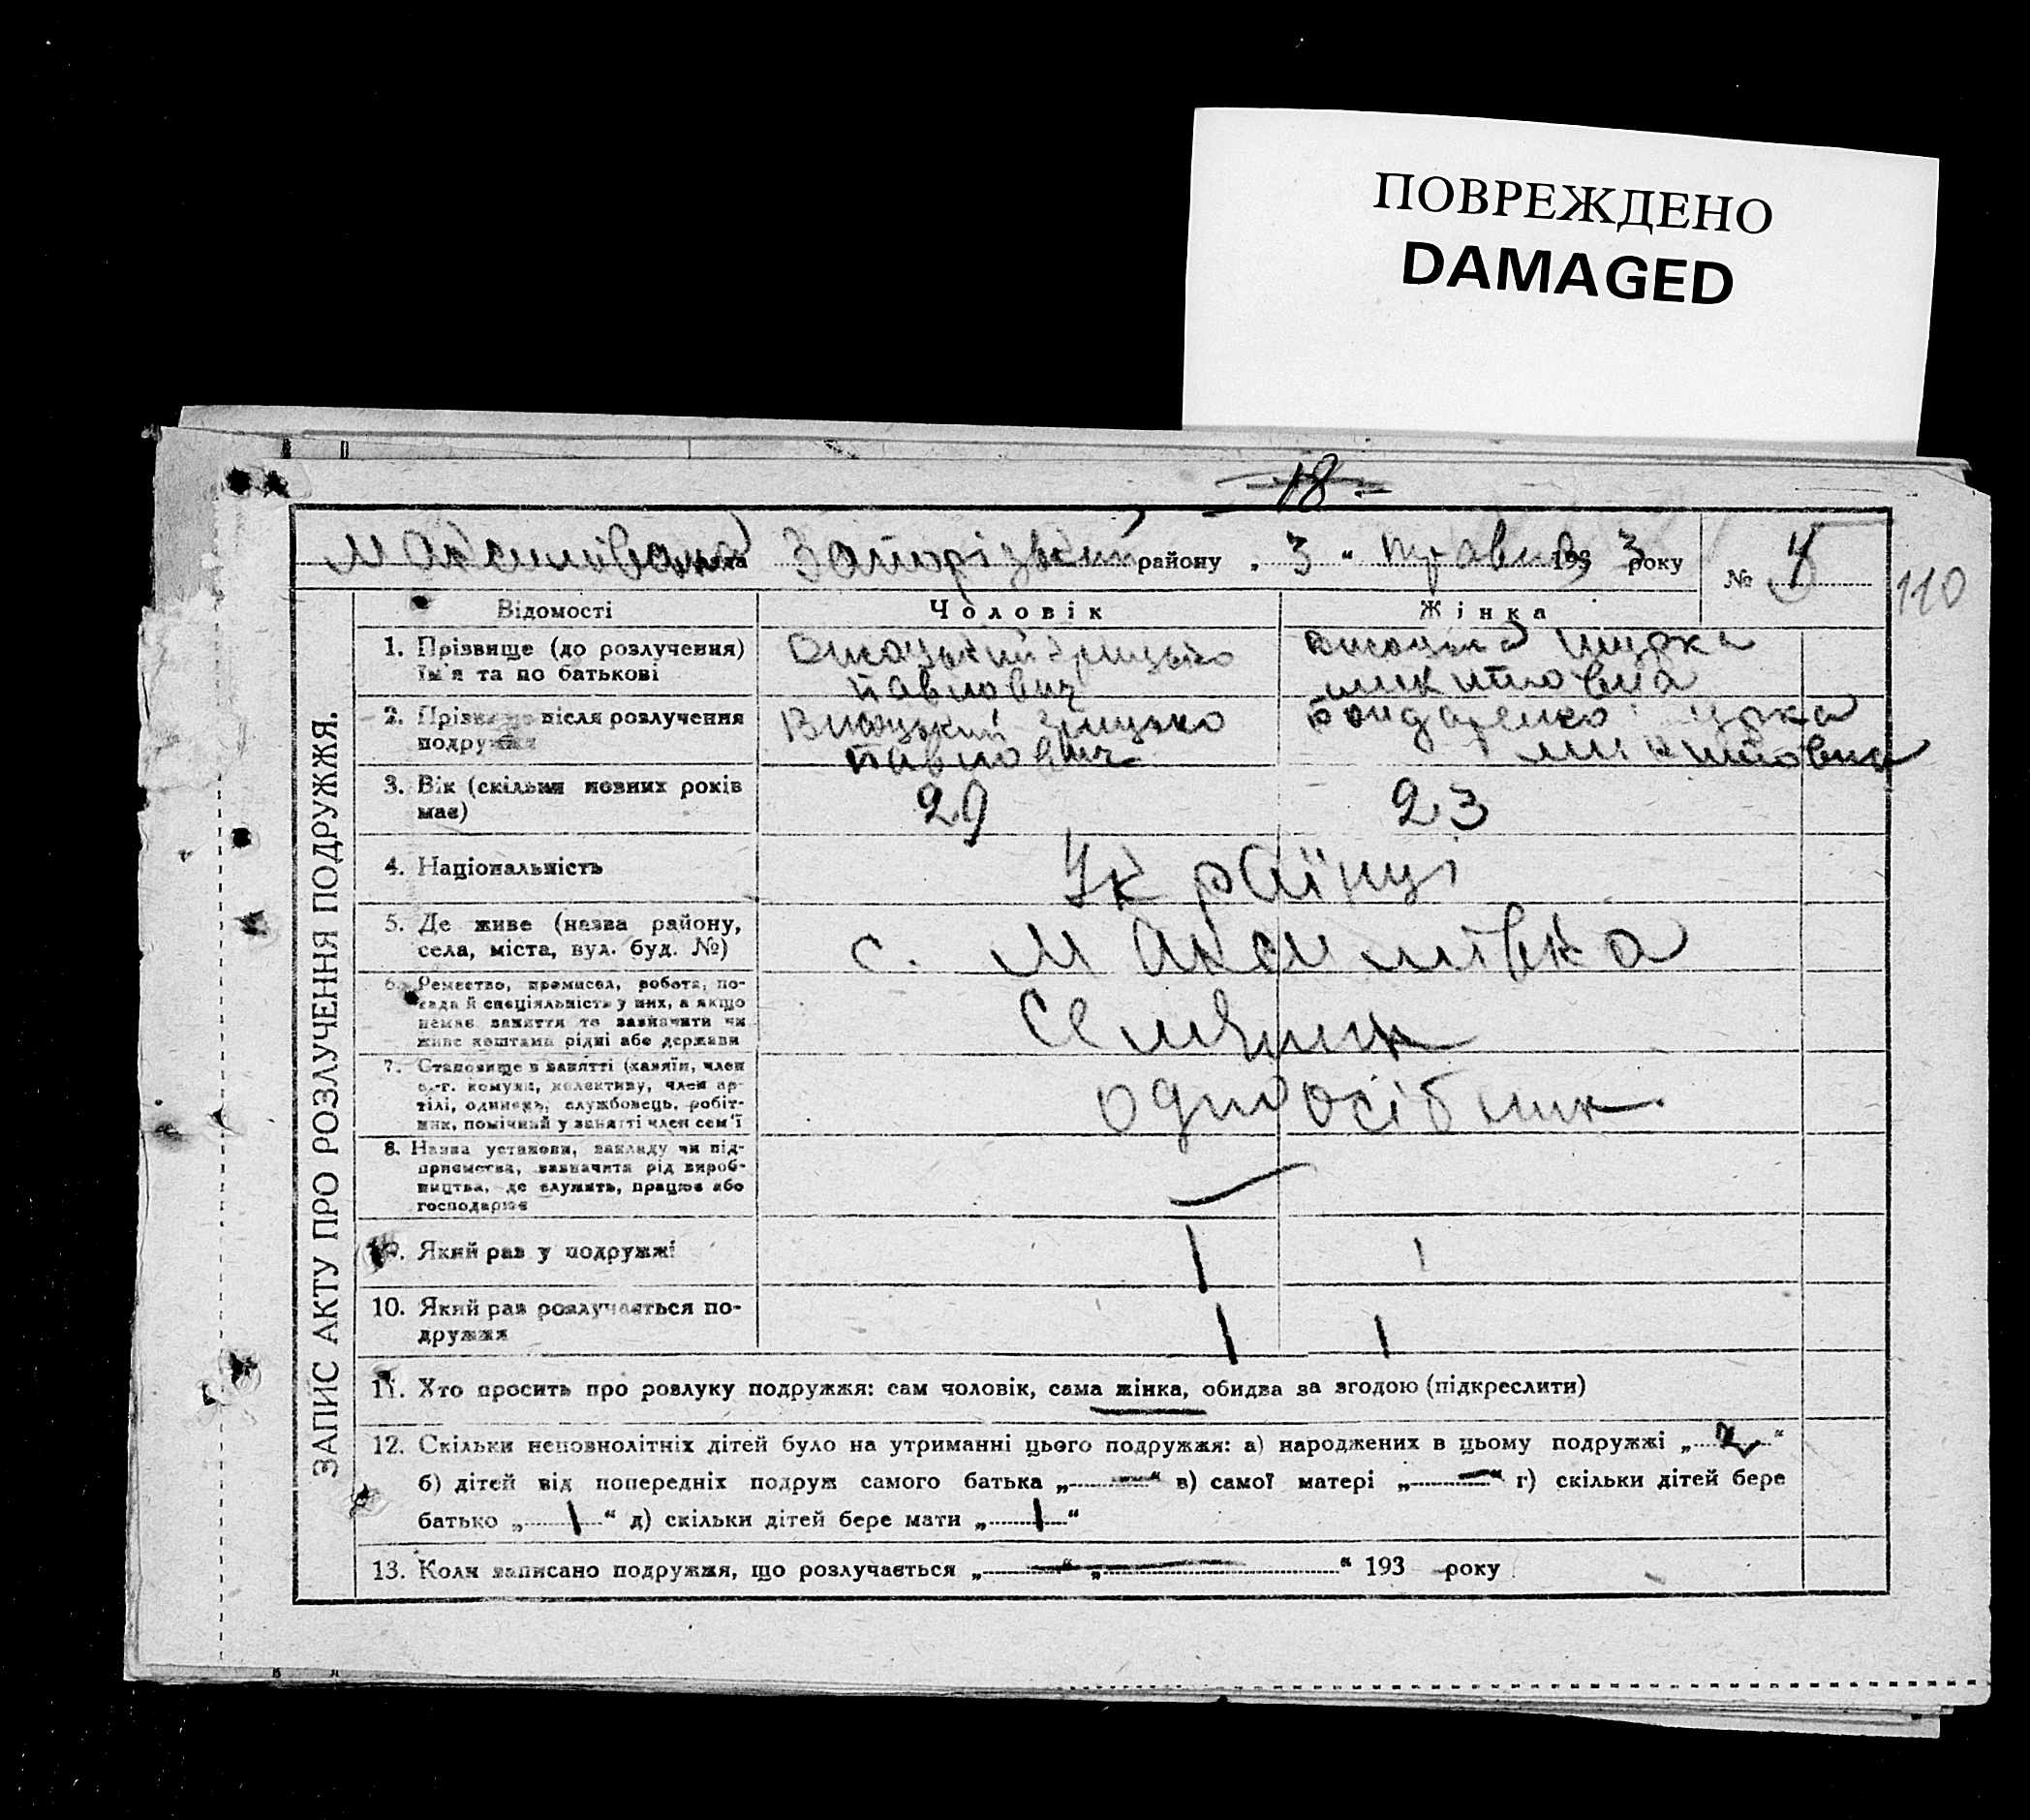 ПОВРЕЖДЕНО
DAMAGED
18 -
Максимівська Запорізький району „ 3 “ травня 193 3 року № 4
110
ЗАПИС АКТУ ПРО РОЗЛУЧЕННЯ ПОДРУЖЖЯ.
Відомості Чоловік Жінка
1. Прізвище (до розлучення) Висоцький Грицько
їм'я та по батькові Павлович Микитовна
2. Прізвище після розлучення Висоцький Грицько Бондаренко
подружжя Павлович Микитовна
3. Вік (скільки повних років 29 23
має)
4. Національність Українці
5. Де живе (назва району, с. Максимівка
села, міста, вул. буд. №)
6. Ремество, промисел, робота, по-
сада й спеціяльність у них, а якщо
немає заняття то зазначити чи
живе коштами рідні або держави
7. Становище в занятті (хазяїн, член
с.-г. комуни, колективу, член ар- одноосібник
тілі, одинець, службовець, робіт-
ник, помічний у занятті член сем'ї
8. Назва установи, закладу чи під-
приємства, зазначити рід вироб-
ництва, де служить, працює або
господарює
9. Який раз у подружжі 1 1
10. Який раз розлучається по- 1 1
дружжя
11. Хто просить про розлуку подружжя: сам чоловік, сама жінка, обидва за згодою (підкреслити)
12. Скільки неповнолітніх дітей було на утриманні цього подружжя: а) народжених в цьому подружжі „ 2 “
б) дітей від попередніх подруж самого батька „ — “ в) самої матері „ — “ г) скільки дітей бере
батько „ 1 “ д) скільки дітей бере мати „ 1 “
13. Коли записано подружжя, що розлучається „ — “ „ — “ 193 року